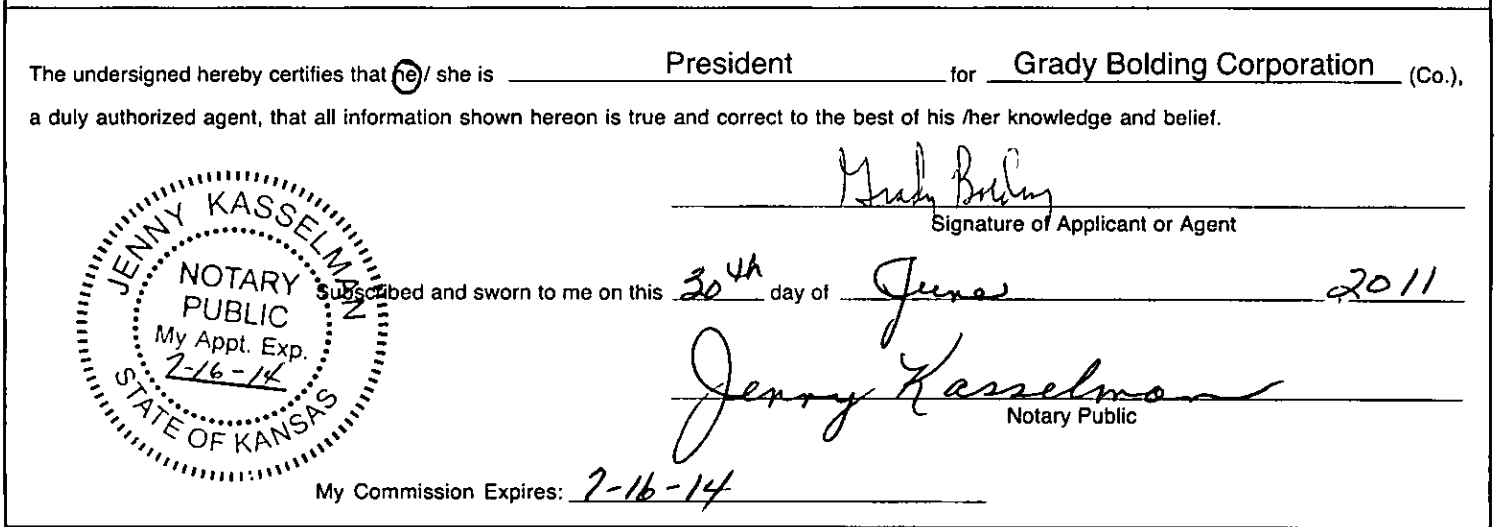 The undersigned hereby certifies that he / she is President for Grady Bolding Corporation (Co.),
a duly authorized agent, that all information shown hereon is true and correct to the best of his /her knowledge and belief.
Grady Bolding
Signature of Applicant or Agent
JENNY KASSELMAN
NOTARY
PUBLIC
My Appt. Exp.
7-16-14
STATE OF KANSAS
Subscribed and sworn to me on this 30th day of June 2011
Jenny Kasselman
Notary Public
My Commission Expires: 7-16-14